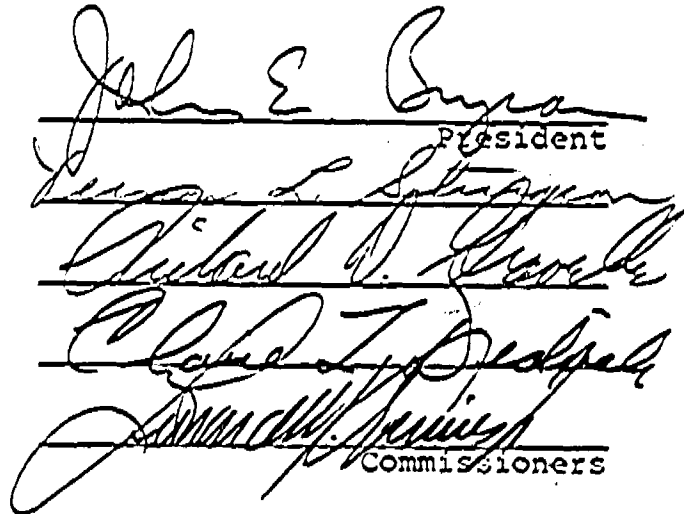 John E Bryson
President
L. Sturgeon
Richard D. Gravelle
Claire T. Dedrick
Commissioners